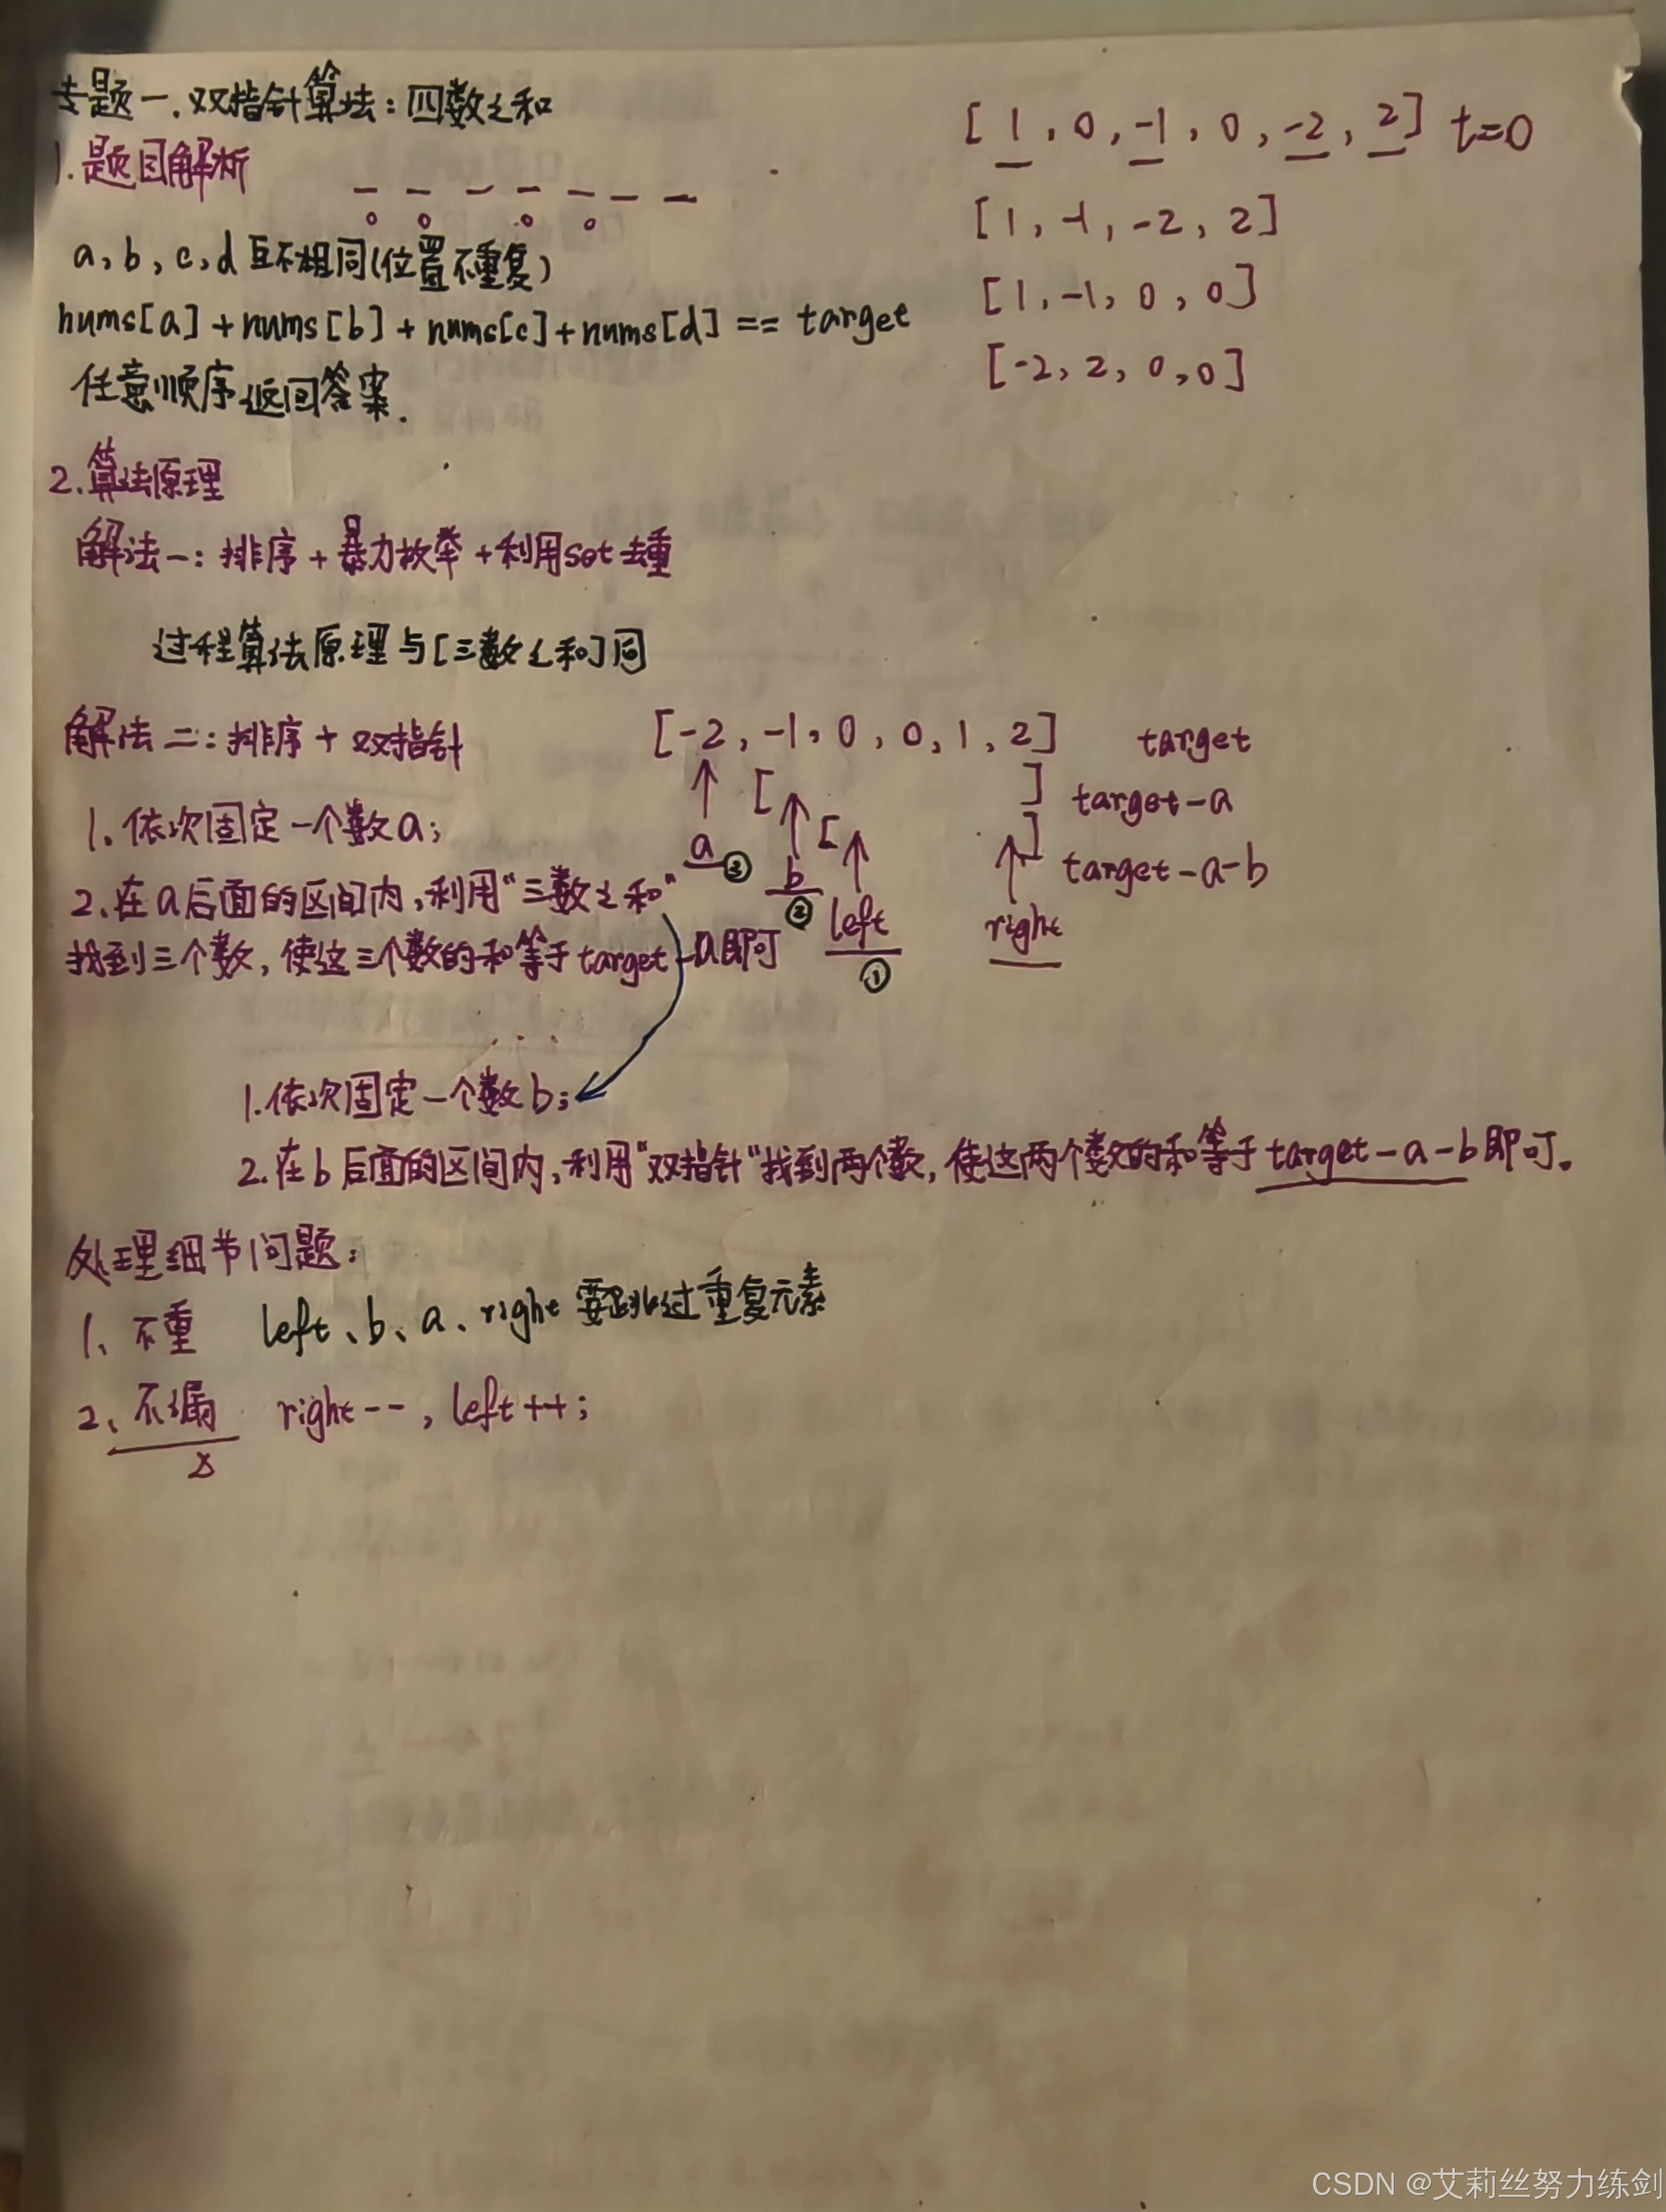 专题一.双指针算法:四数之和
1.题目解析
a,b,c,d互不相同(位置不重复)
nums[a]+nums[b]+nums[c]+nums[d]==target
任意顺序返回答案.
[1,0,-1,0,-2,2] t=0
[1,-1,-2,2]
[1,-1,0,0]
[-2,2,0,0]
2.算法原理
解法一:排序+暴力枚举+利用set去重
过程算法原理与[三数之和]同
解法二:排序+双指针
1.依次固定一个数a;
2.在a后面的区间内,利用"三数之和"
找到三个数,使这三个数的和等于target-a即可
[-2,-1,0,0,1,2] target
[ ] target-a
[ ] target-a-b
a③
b②
left①
right
1.依次固定一个数b;
2.在b后面的区间内,利用"双指针"找到两个数,使这两个数的和等于target-a-b即可。
处理细节问题:
1、不重 left、b、a、right要跳过重复元素
2、不漏 right--,left++;
CSDN @艾莉丝努力练剑